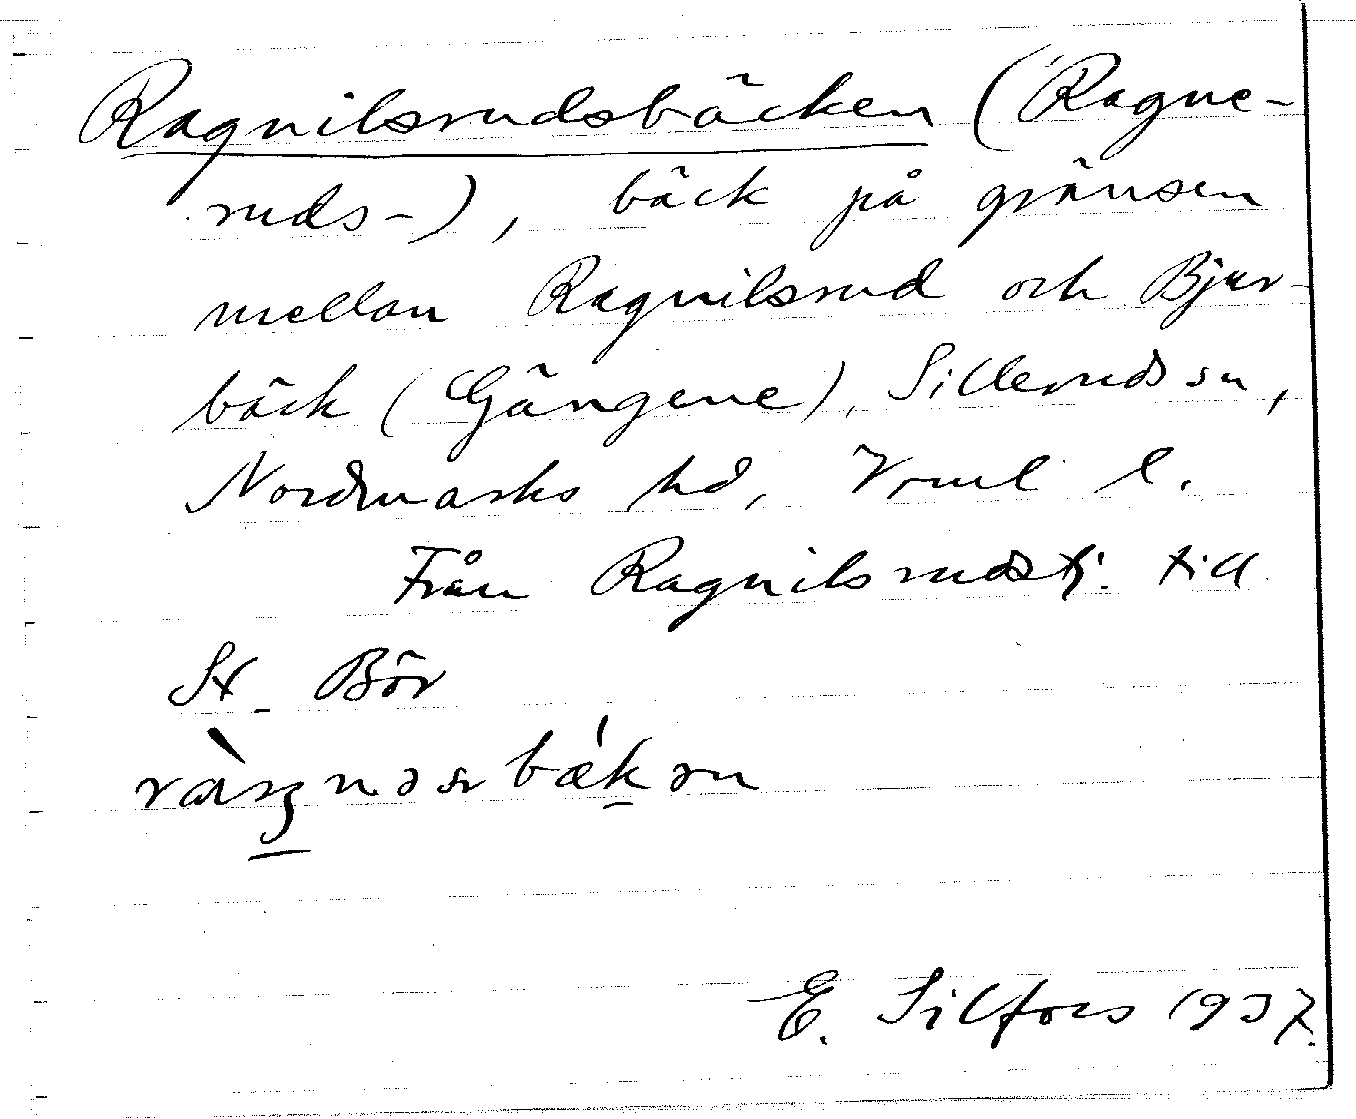 Ragnilsrudsbäcken (Ragne-
ruds-), bäck på gränsen
mellan Ragnilsrud och Bjur-
bäck (Gängene), Sillerudssn,
Nordmarks hd, Vrml l.
Från Ragnilsrudstj. till
St. Bör
E. Silfors 1937.